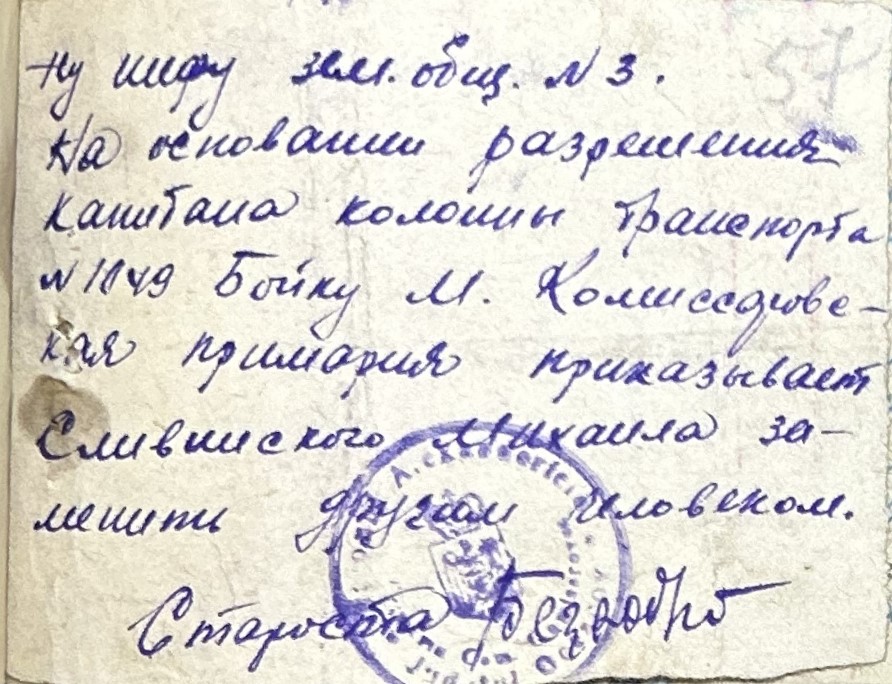 57
шефу зем. общ. N 3.
На основании разрешения
капитана колонны транспорта
N 1849 Бойку М. Комиссаровс-
кая примария приказывает
Сливинского Михаила за-
менить другим человеком.
Староста